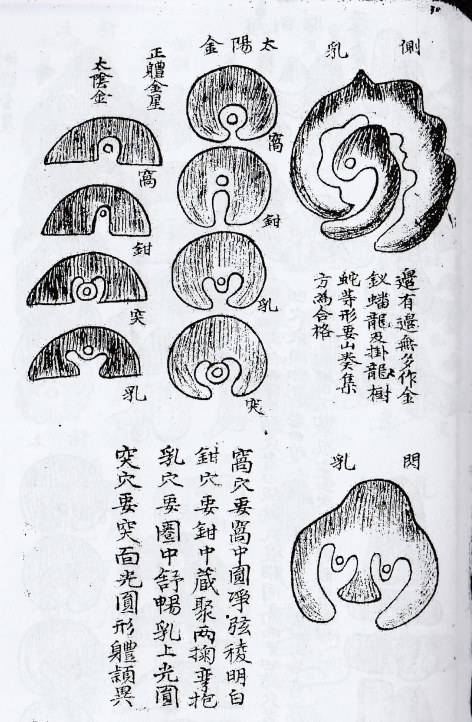 側乳
邊有邊無多作金
釵蟠龍及掛龍樹
蛇等形要山奏集
方為合格
閃乳
太陽金
窩
鉗
乳
突
正體金星
太陰金
窩
鉗
突
乳
窩穴要窩中圓淨弦稜明白
鉗穴要鉗中藏聚兩掬彎抱
乳穴要圈中舒暢乳上光圓
突穴要突面光圓形體穎異